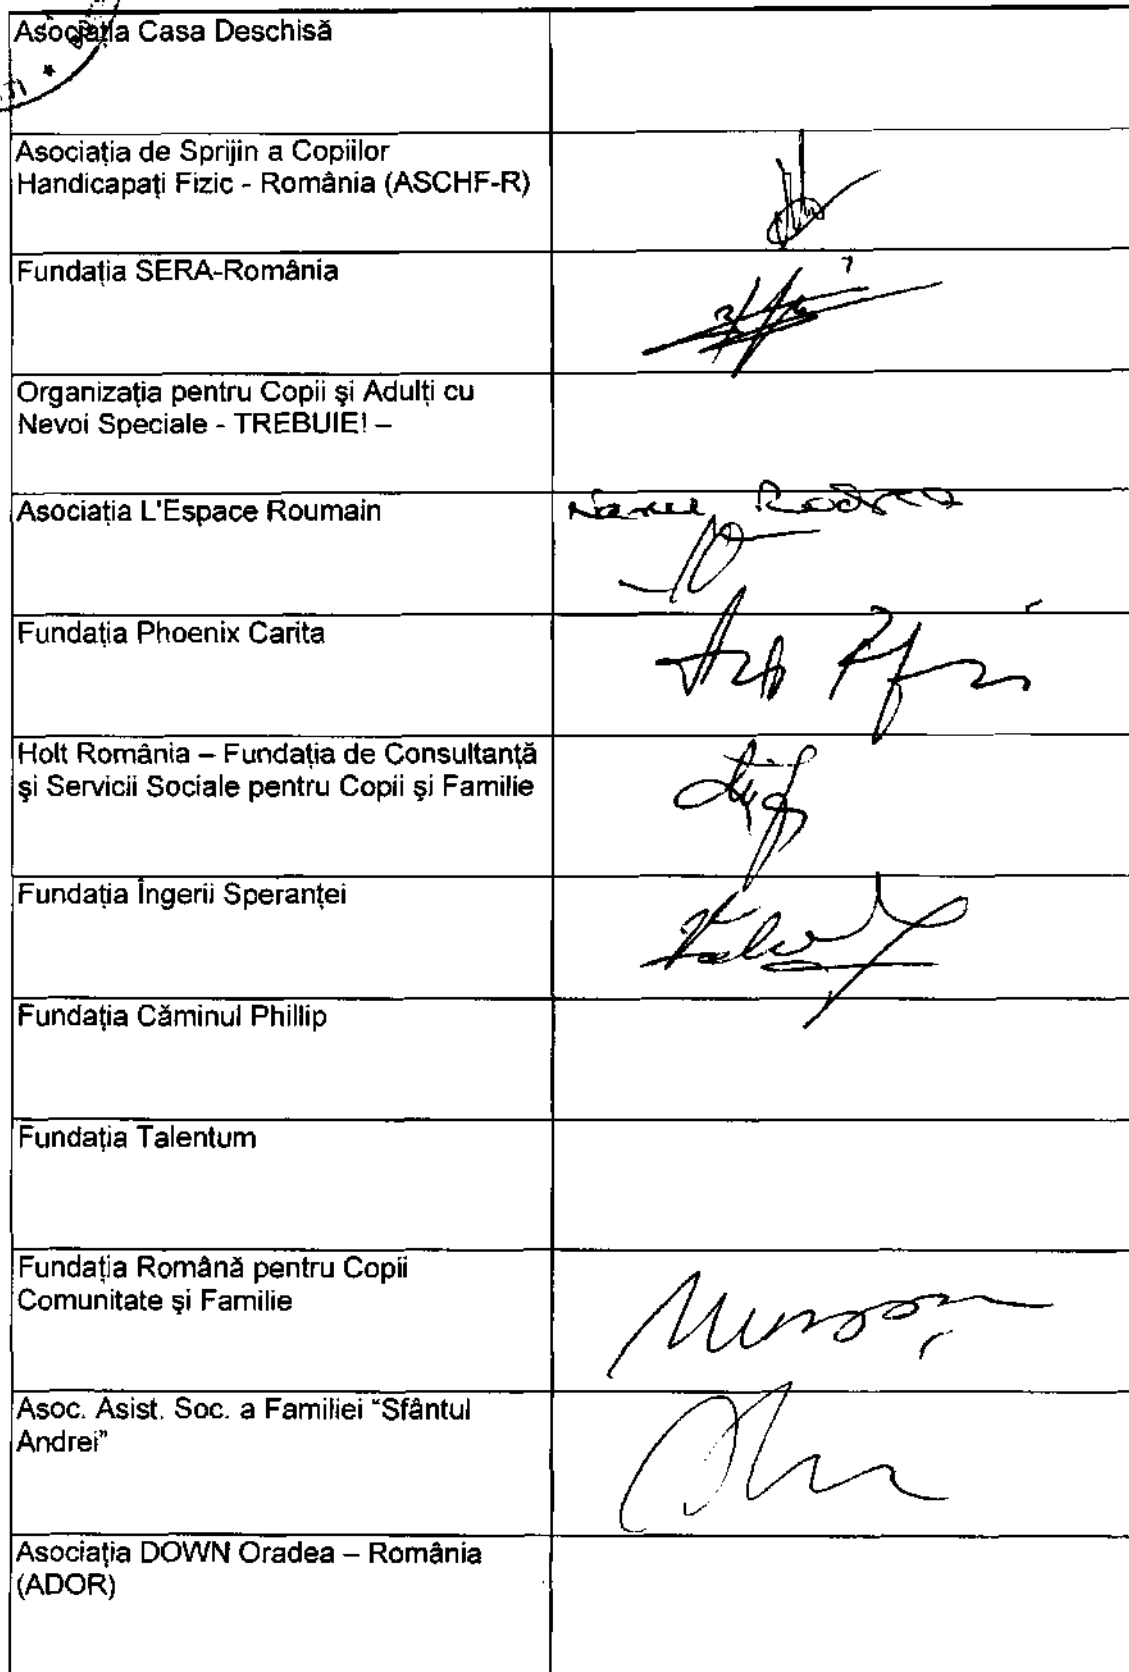 Asociația Casa Deschisă
Asociația de Sprijin a Copiilor
Handicapați Fizic - România (ASCHF-R)
Fundația SERA-România
Organizația pentru Copii şi Adulți cu
Nevoi Speciale - TREBUIE! –
Asociația L'Espace Roumain
Fundația Phoenix Carita
Holt România – Fundația de Consultanță
şi Servicii Sociale pentru Copii şi Familie
Fundația Îngerii Speranței
Fundația Căminul Phillip
Fundația Talentum
Fundația Română pentru Copii
Comunitate şi Familie
Asoc. Asist. Soc. a Familiei “Sfântul
Andrei”
Asociația DOWN Oradea – România
(ADOR)